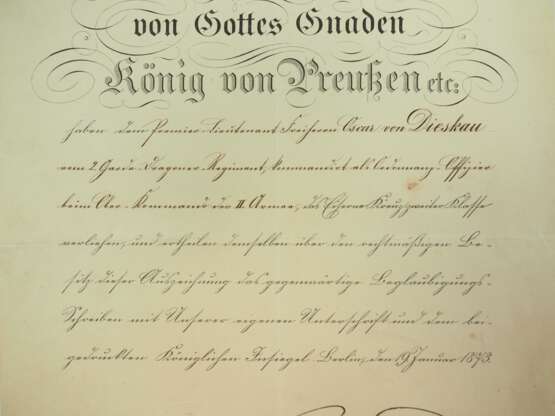 von Gottes Gnaden
König von Preußen etc:
haben dem Premier-Lieutenant Freiherrn Oscar von Dieskau
vom 2. Garde-Dragoner-Regiment, kommandirt als Ordonnanz-Offizier
beim Ober-Kommando der II. Armee, das Eiserne Kreuz zweiter Klasse
verliehen, und ertheilen demselben über den rechtmäßigen Be-
sitz dieser Auszeichnung das gegenwärtige Beglaubigungs-
Schreiben mit Unserer eigenen Unterschrift und dem bei-
gedruckten Königlichen Insiegel. Berlin, den 19. Januar 1873.